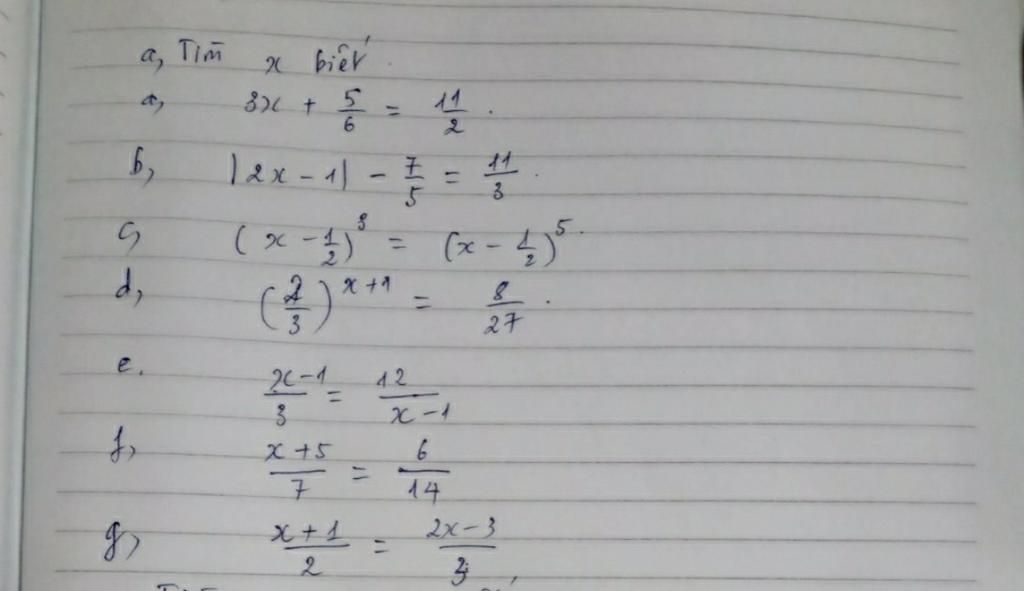 a, Tìm x biết.
a, 3x + 5/6 = 11/2.
b, |2x - 1| - 7/5 = 11/3.
c, (x - 1/2)^3 = (x - 1/2)^5.
d, (2/3)^(x+1) = 8/27.
e. (x-1)/3 = 12/(x-1)
f, (x+5)/7 = 6/14
g, (x+1)/2 = (2x-3)/3